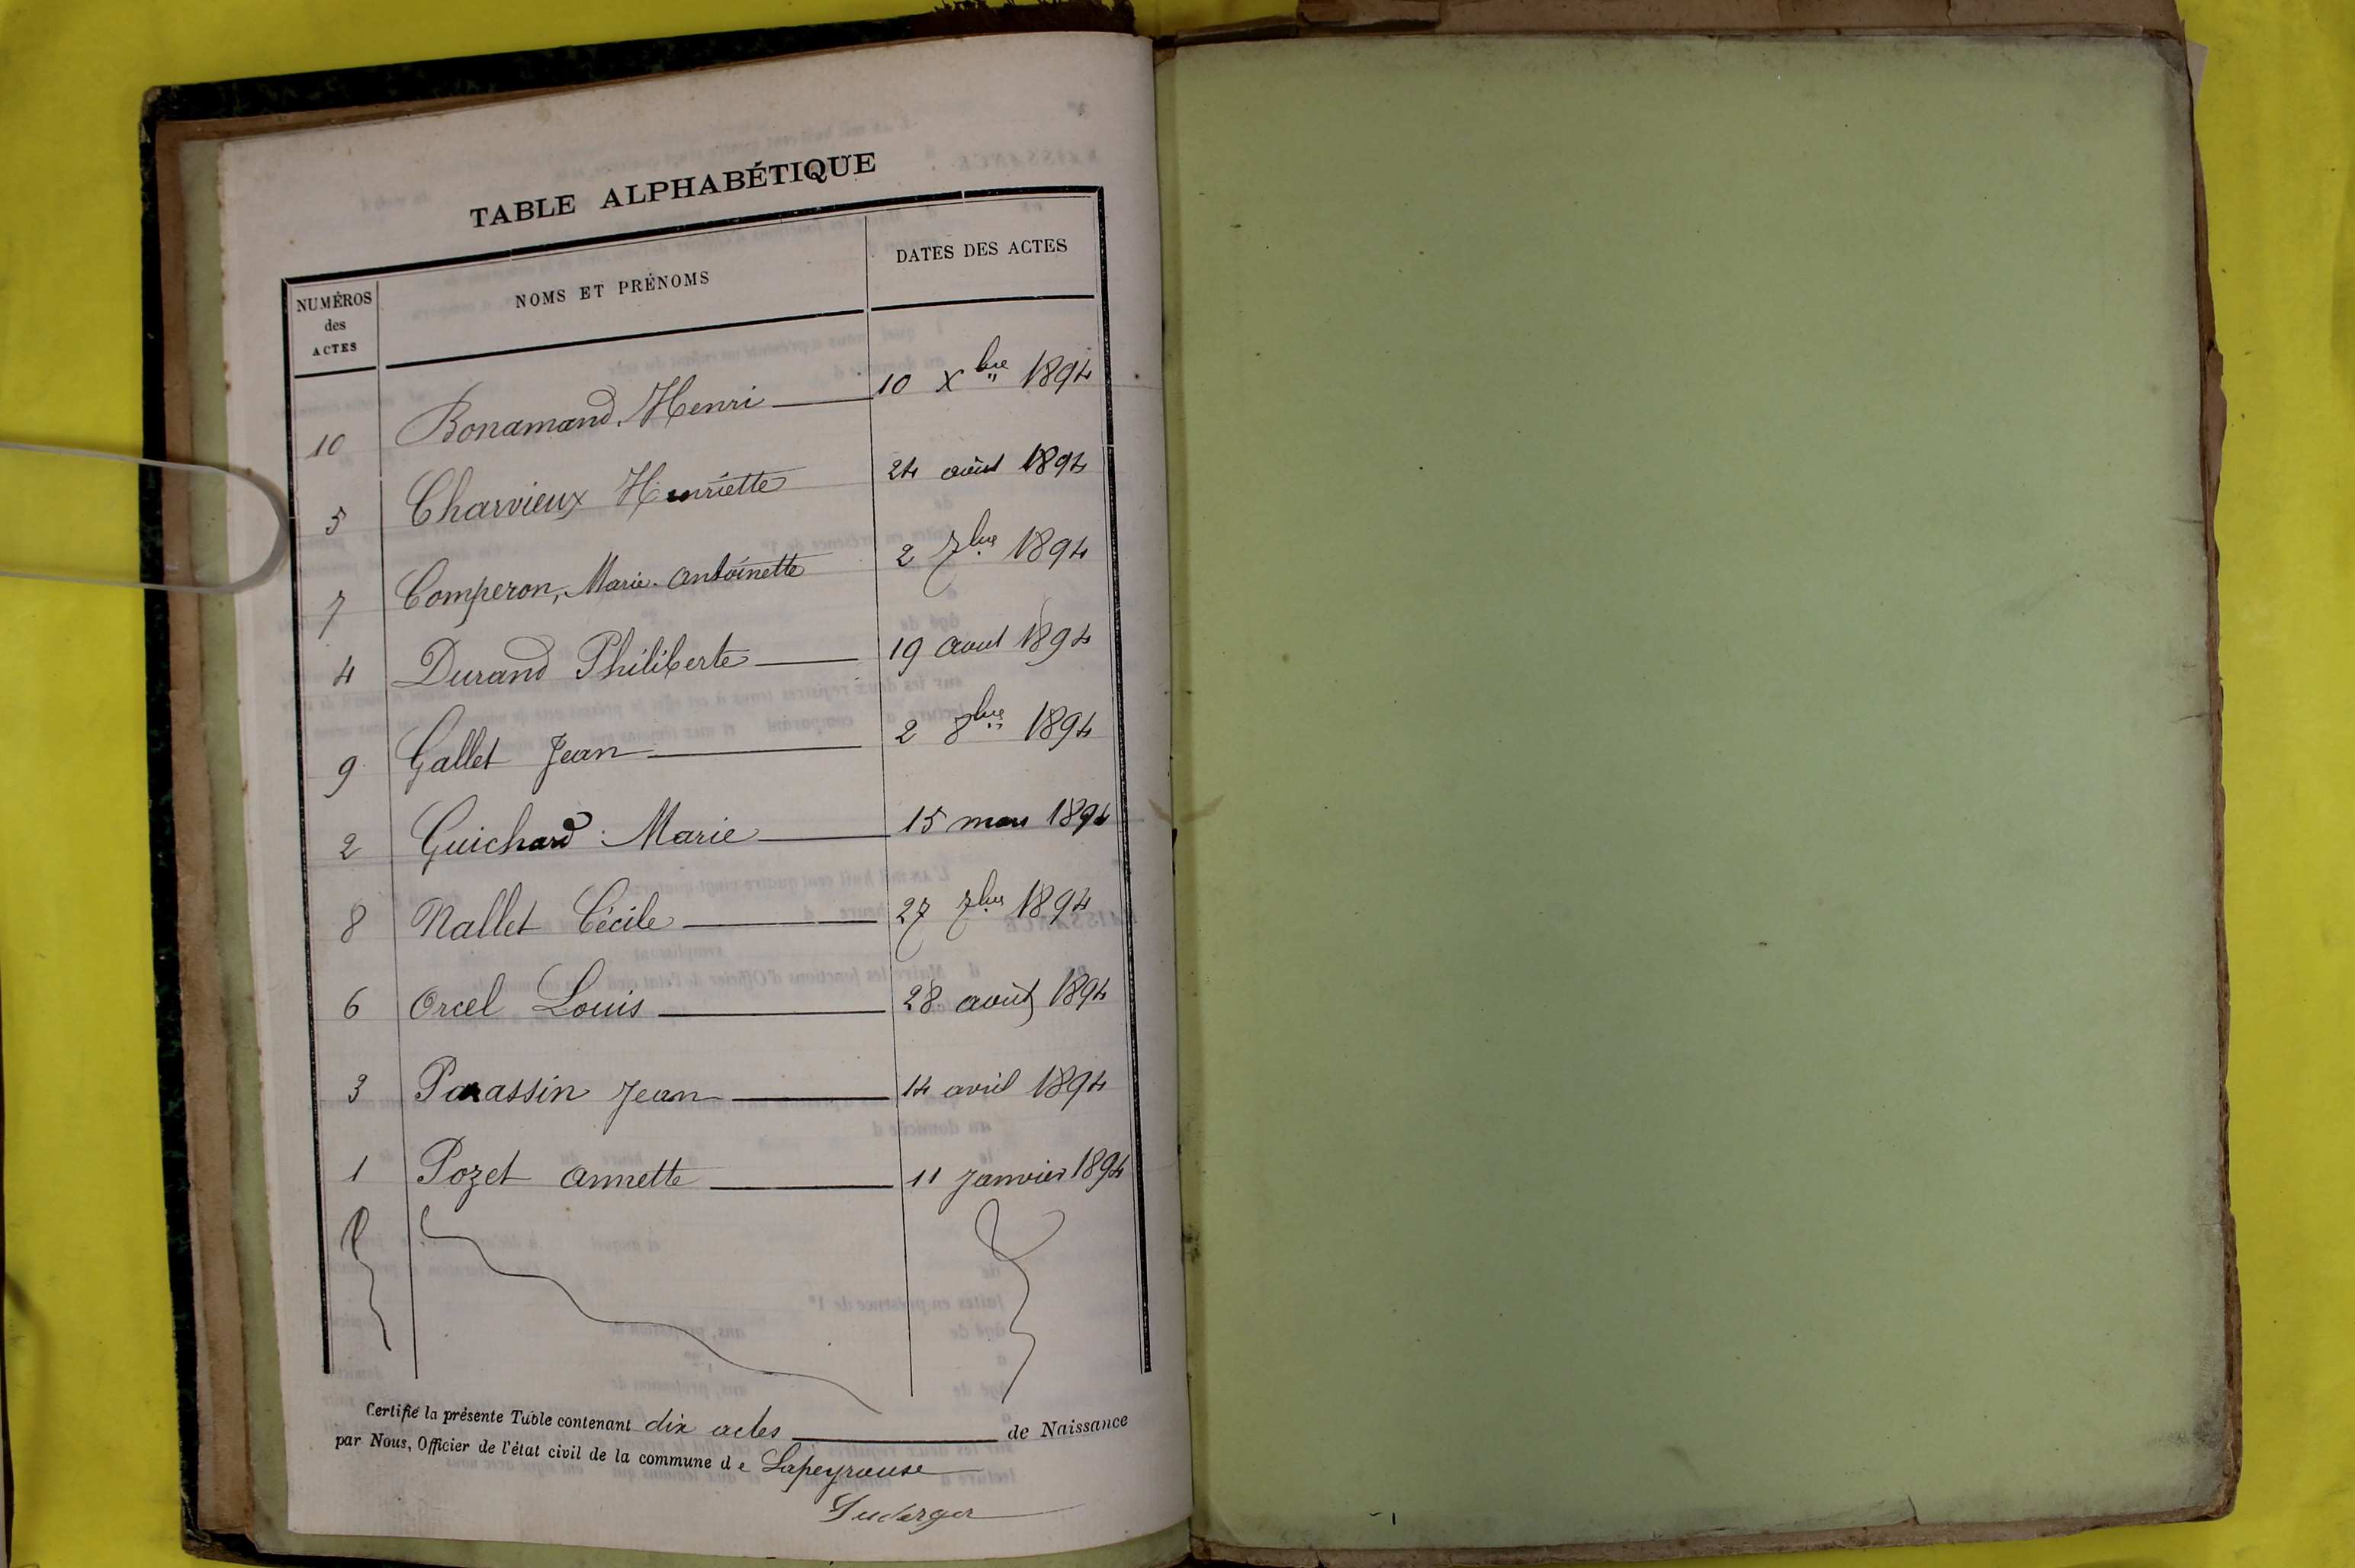 TABLE ALPHABÉTIQUE
NUMÉROS des ACTES NOMS ET PRÉNOMS DATES DES ACTES
10 Bonamand, Henri 10 Xbre 1894
5 Charvieux Henriette 24 août 1894
7 Comperon, Marie-Antoinette 2 7bre 1894
4 Durand Philiberte 19 aout 1894
9 Gallet Jean 2 8bre 1894
2 Guichard Marie 15 mars 1894
8 Nallet Cécile 27 7bre 1894
6 Orcel Louis 28 août 1894
3 Parassin Jean 14 avril 1894
1 Pozet Annette 11 Janvier 1894
Certifié la présente Table contenant dix actes de Naissance
par Nous, Officier de l'état civil de la commune de Lapeyrouse